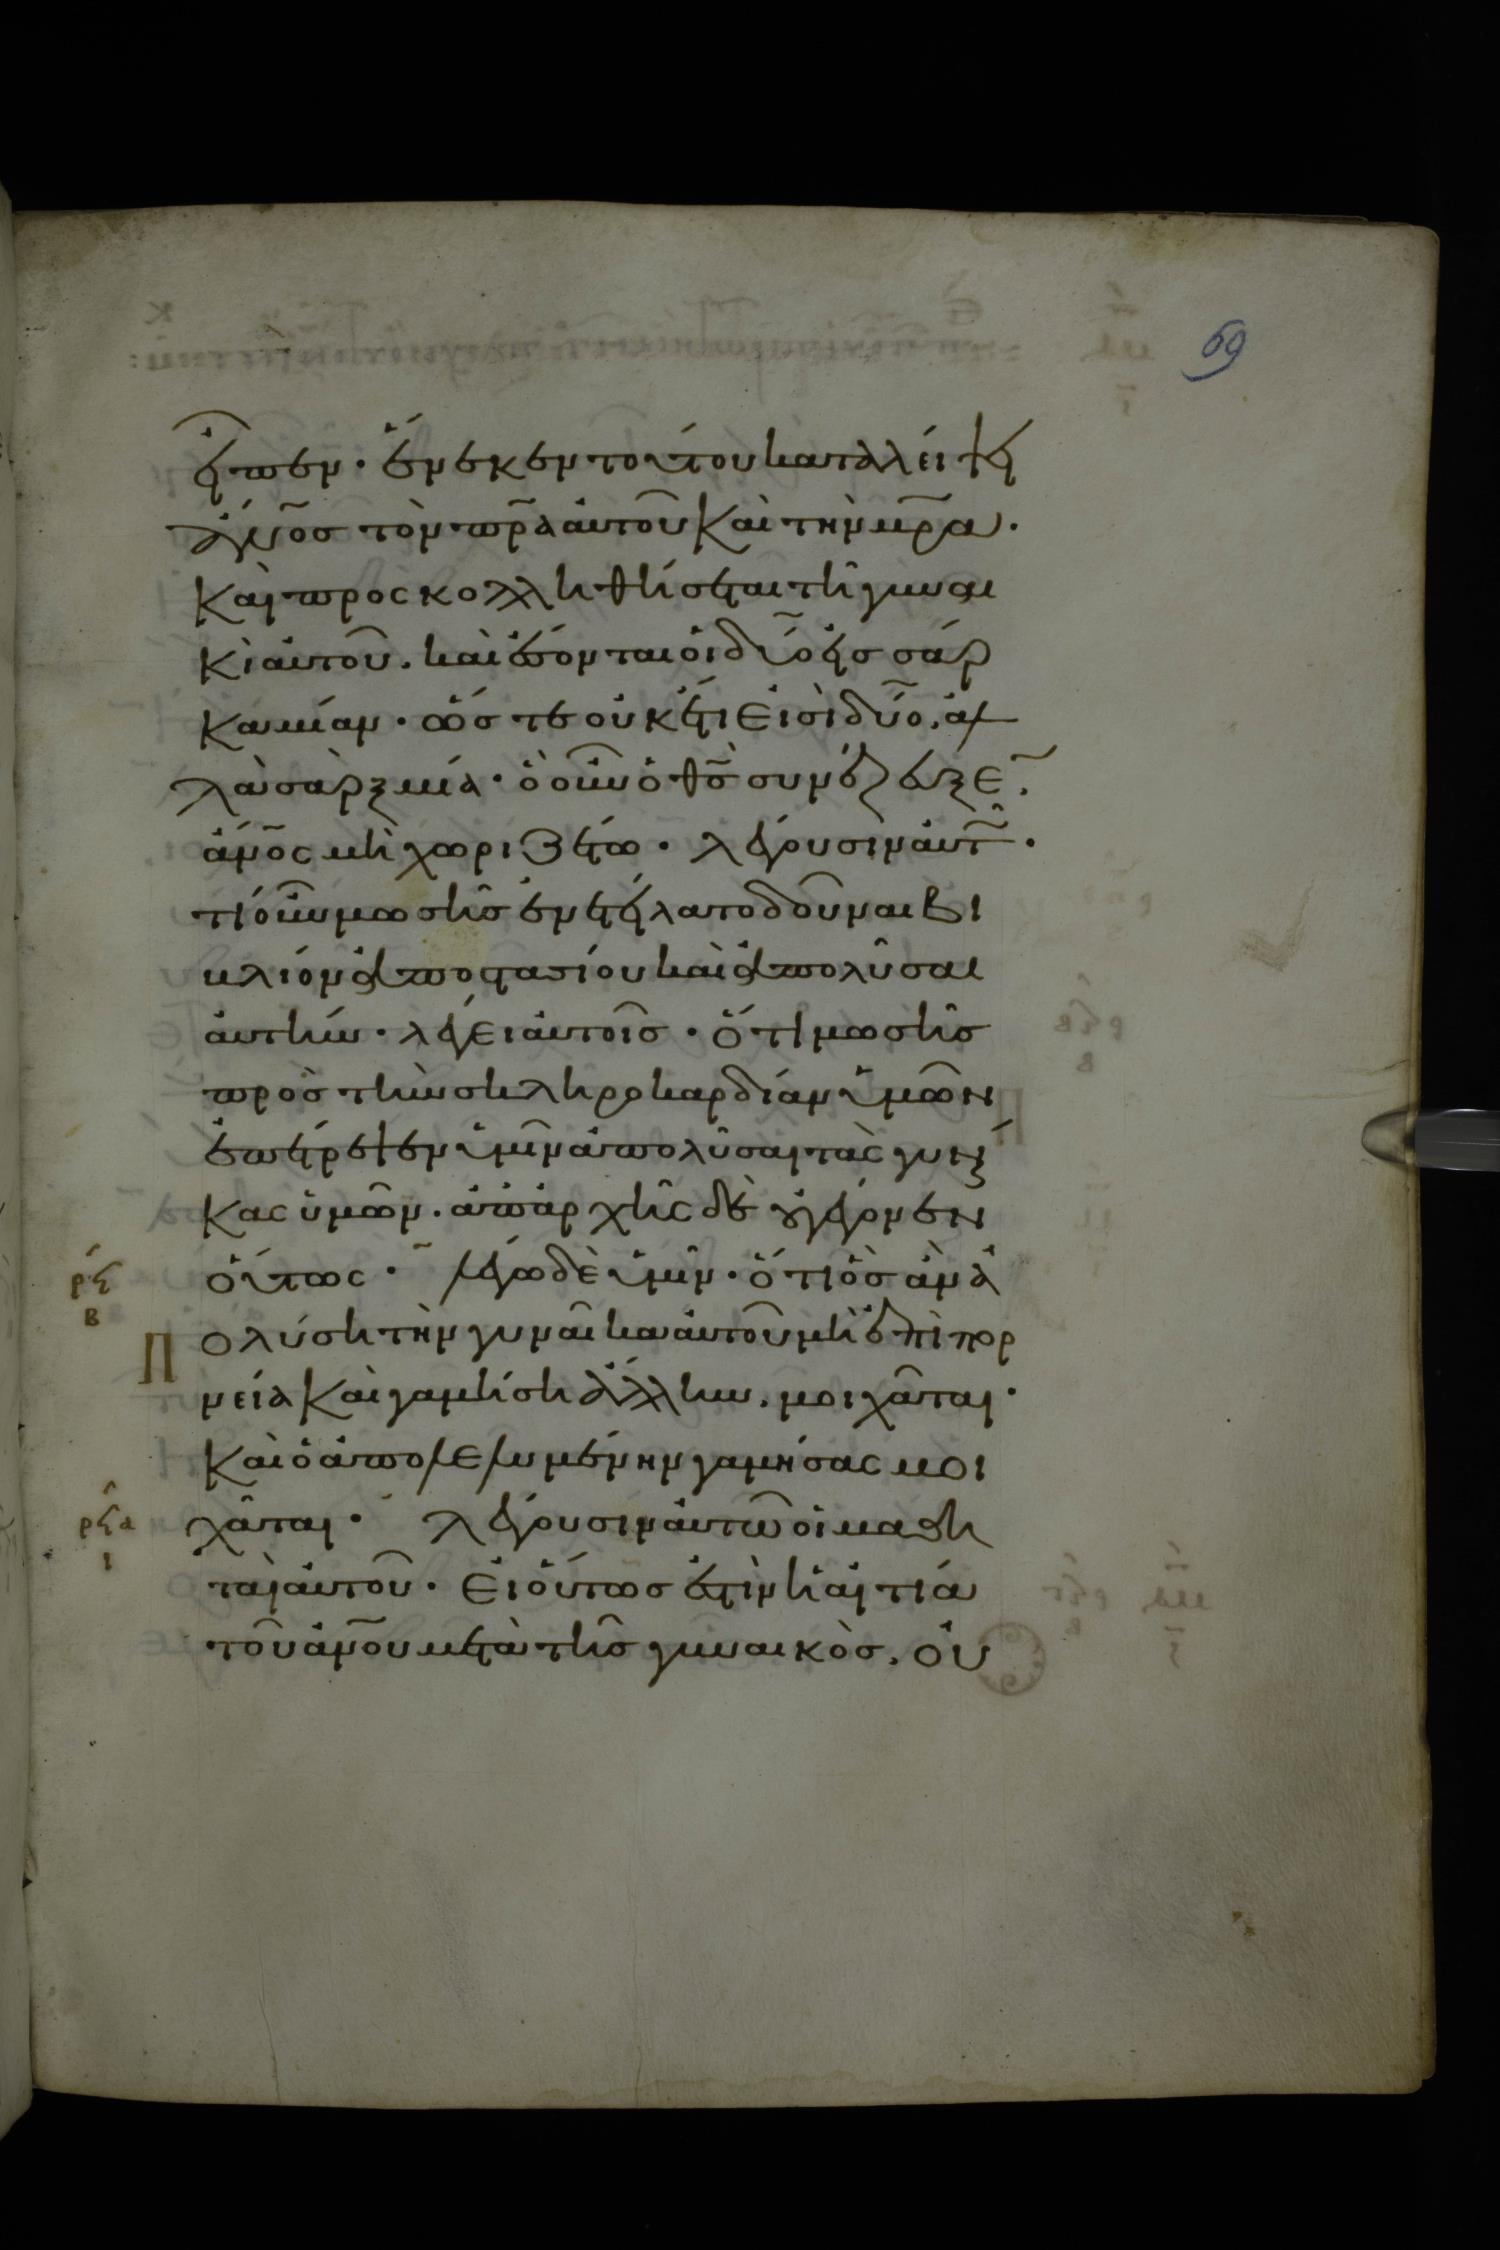 69
εἶπεν· ἕνεκεν τούτου καταλείψει
ἄνο̅ς τὸν πρ̅α αὐτοῦ καὶ τὴν μρ̅α·
καὶ προσκολληθήσεται τῆ γυναι
κὶ αὐτοῦ. καὶ ἔσονται οἱ δύο εἰς σάρ
κα μίαν· ὥστε οὐκέτι εἰσὶ δύο, ἀλ
λὰ σὰρξ μία· ὃ οὖν ὁ θς̅ συνέζευξε̅,
ἄνο̅ς μὴ χωριζέτω· λέγουσιν αὐτῶ·
τί οὖν μωσῆς ἐνετείλατο δοῦναι βι
βλίον ἀποστασίου καὶ ἀπολῦσαι
αὐτήν· λέγει αὐτοῖς· ὅτι μωσῆς
πρὸς τὴν σκληροκαρδίαν ὑμῶν
ἐπέτρεψεν ὑμῖν ἀπολῦσαι τὰς γυναῖ
κας ὑμῶν. ἀπ' ἀρχῆς δὲ οὐ γέγονεν
οὕτως· λέγω δὲ ὑμῖν· ὅτι ὃς ἂν ἀ
ρϟ
β
πολύση τὴν γυναῖκα αὐτοῦ μὴ ἐπὶ πορ
νεία καὶ γαμήση ἄλλην. μοιχᾶται·
καὶ ὁ ἀπολελυμένην γαμήσας μοι
χᾶται· λέγουσιν αὐτῶ οἱ μαθη
ρϟα
ι
ταὶ αὐτοῦ· εἰ οὕτως ἐστὶν ἡ αἰτία
τοῦ ἀνο̅υ μετὰ τῆς γυναικὸς, οὐ